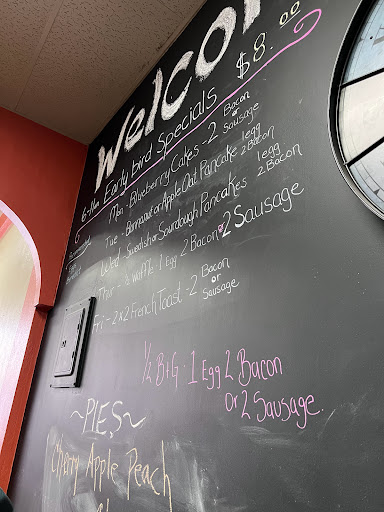 Welco
6-11am Early bird Specials $8.00
Mon - Blueberry Cakes - 2 Bacon or Sausage
Tue - Banana or Apple Oat Pancake 1egg 2 Bacon
Wed - Swedish or Sourdough Pancakes 1egg 2 Bacon
Thir - ½ Waffle 1 Egg 2 Bacon or 2 Sausage
Fri - 2x2 French Toast - 2 Bacon or Sausage
½ B+G - 1 Egg 2 Bacon
Or 2 Sausage
~PIES~
Cherry Apple Peach